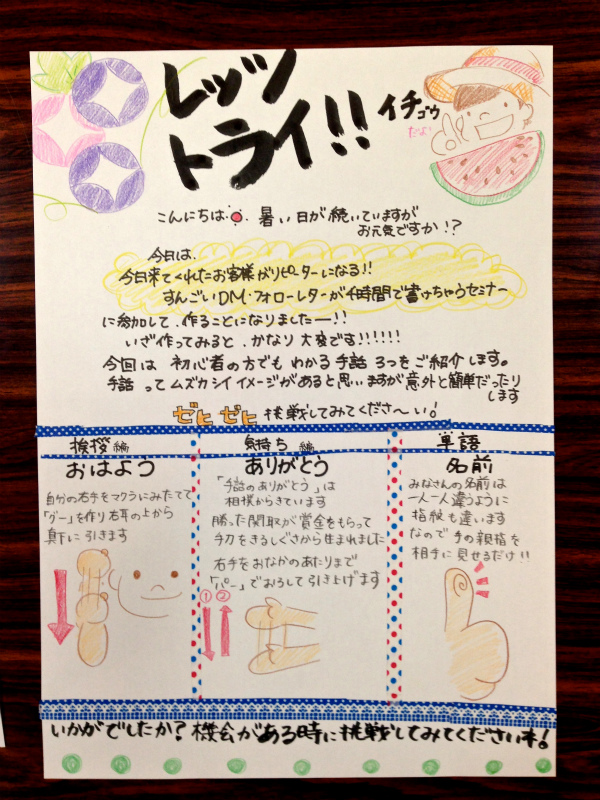 レッツ
トライ!!
イチゴウ
だよ!
こんにちは 暑い日が続いていますが
お元気ですか!?
今日は、
今日来てくれたお客様がリピーターになる!!
すんごいDM・フォローレターが1時間で書けちゃうセミナー
に参加して、作ることになりましたー!!
いざ作ってみると、かなり大変です!!!!!!
今回は 初心者の方でも わかる手話 3つをご紹介します。
手話 ってムズカシイイメージがあると思いますが意外と簡単だったり
します
ゼヒゼヒ 挑戦してみてくださ〜い!
挨拶編
おはよう
自分の右手をマクラにみたてて
「グー」を作り右耳の上から
真下に引きます
気持ち編
ありがとう
「手話のありがとう」は
相撲からきています
勝った関取が賞金をもらって
手刀をきるしぐさから生まれました
右手をおなかのあたりまで
「パー」でおろして引き上げます
① ②
単語
名前
みなさんの名前は
一人一人違うように
指紋も違います
なので手の親指を
相手に見せるだけ!!
いかがでしたか?機会がある時に挑戦してみてくださいネ!